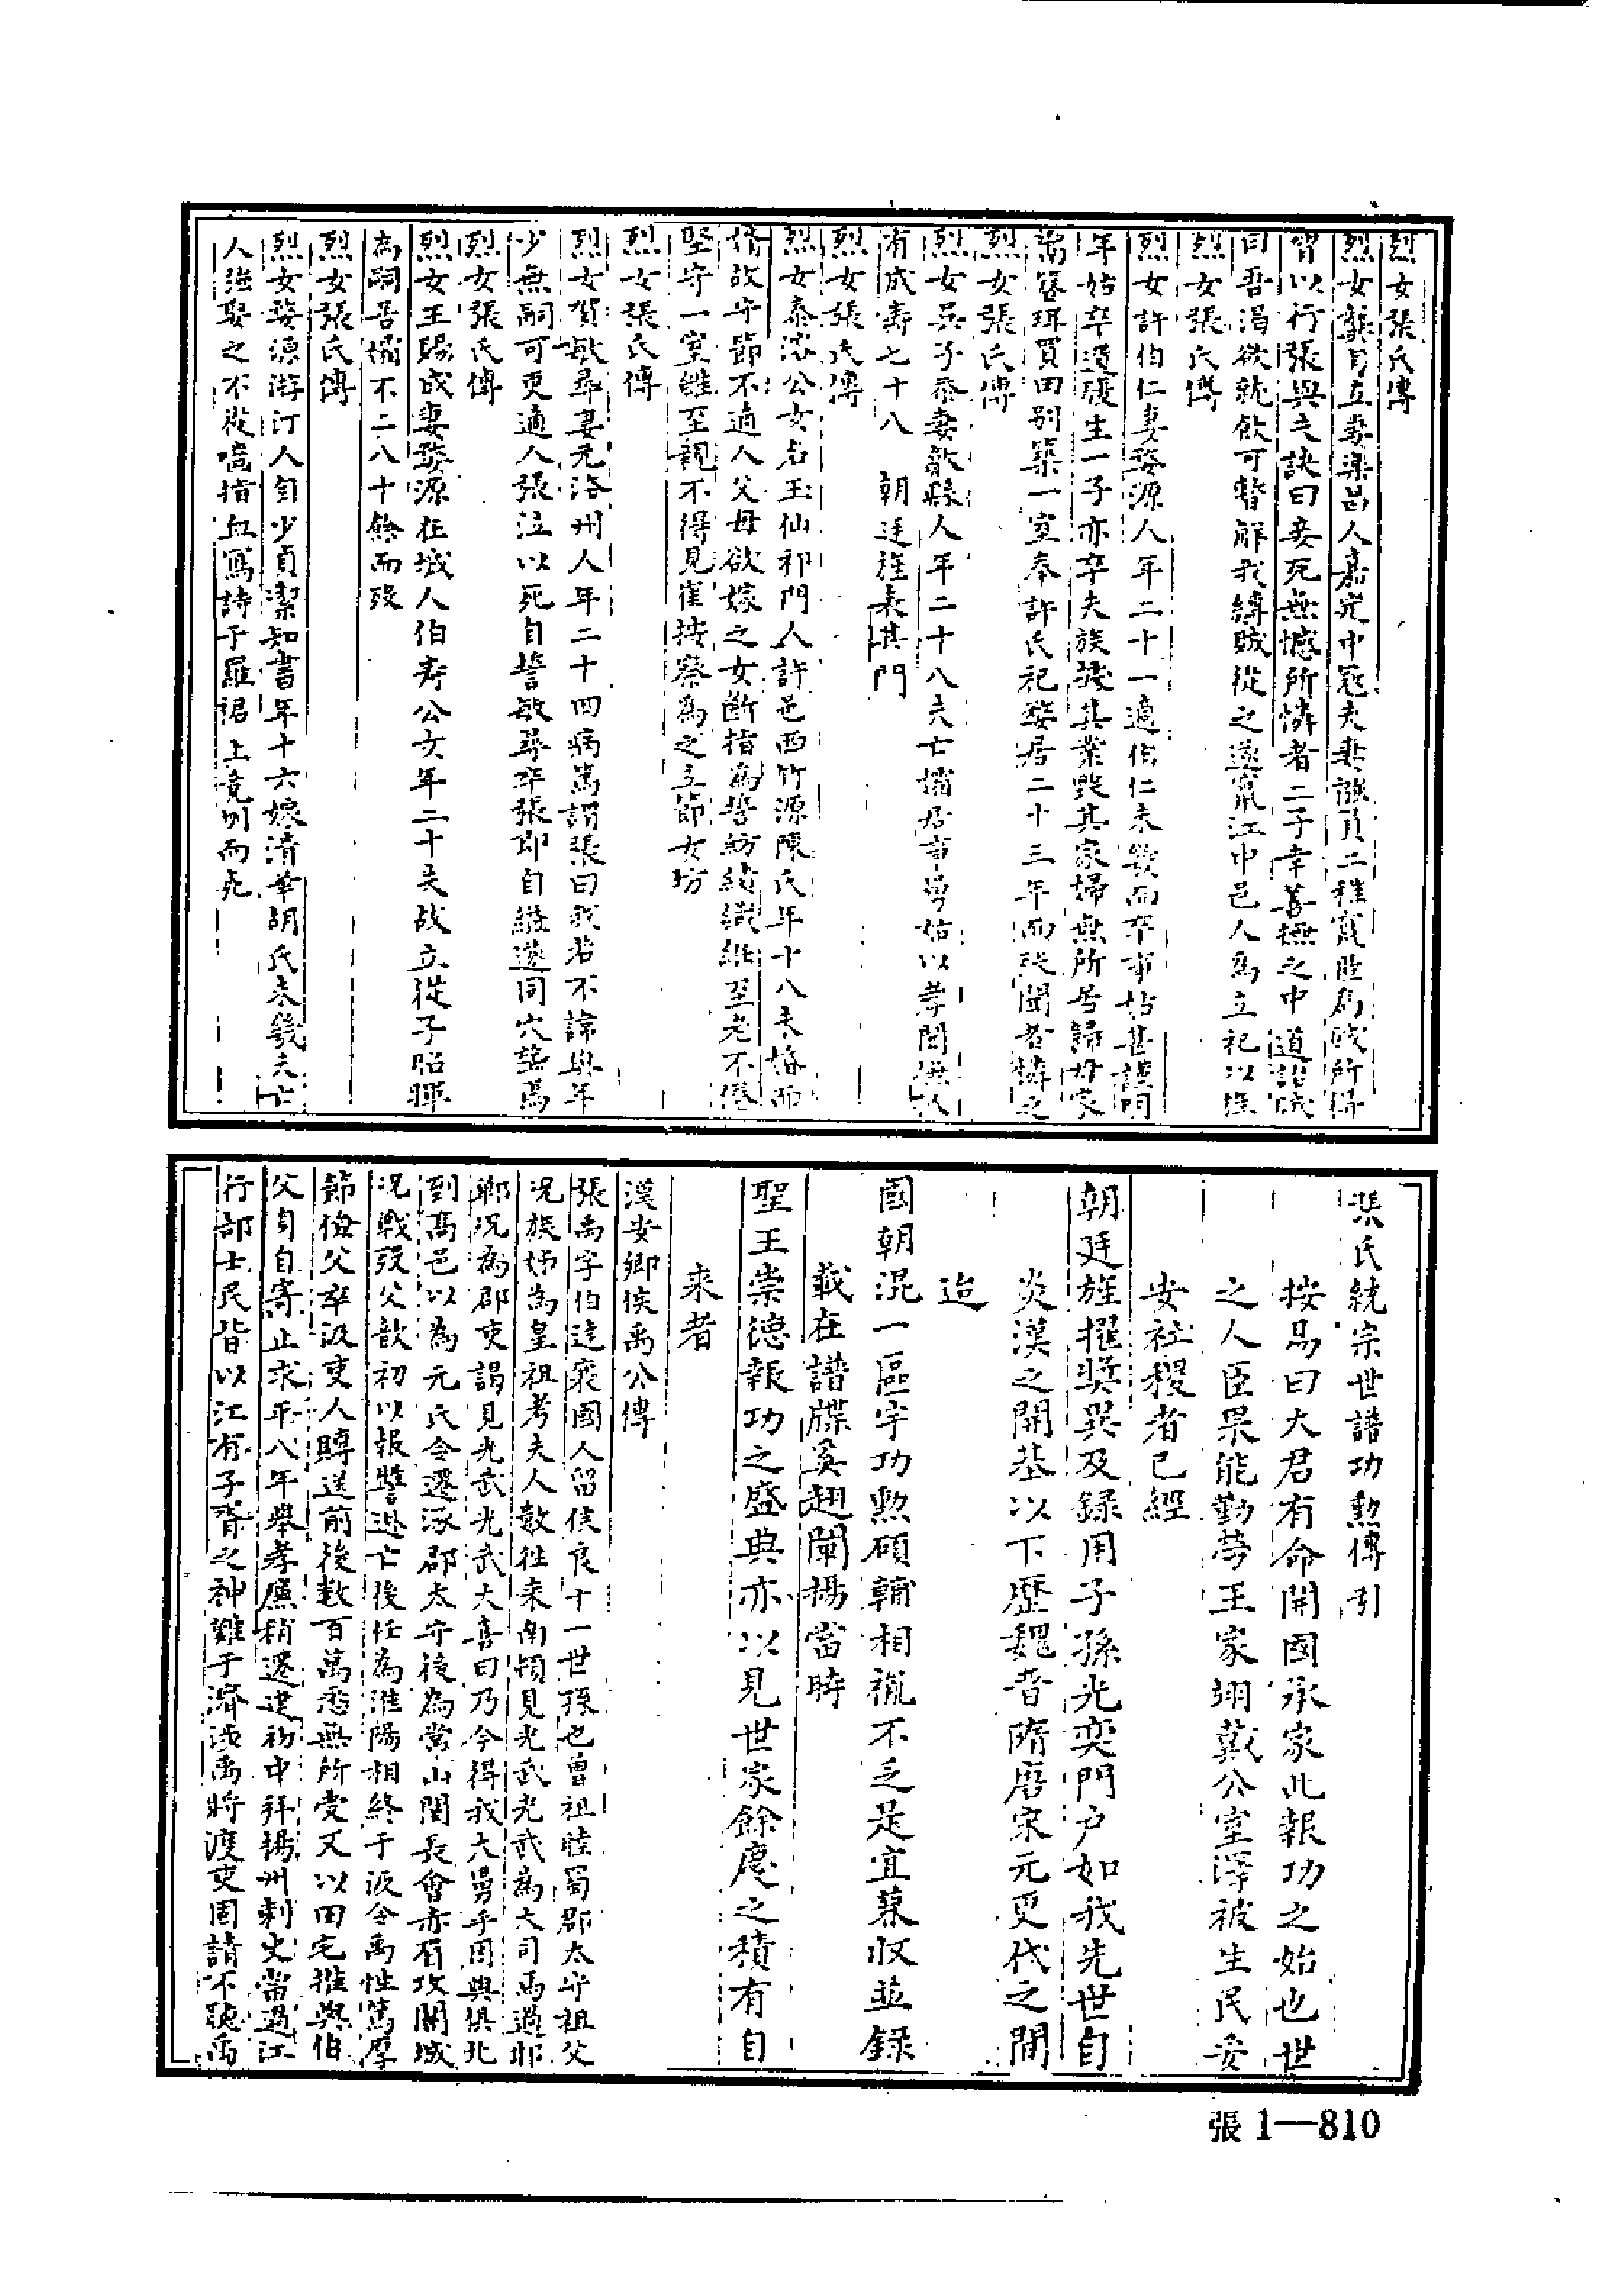 烈女張氏傳
烈女龔自立妻樂昌人嘉定中冠夫妻強負二稚竄匿為賊所得
脅以行張與夫訣曰妾死無憾所憐者二子幸善撫之中道詒賊
曰吾渴欲就飲可暫解我縛賊從之遂竄江中邑人為立祀以
烈女張氏傳
烈女許伯仁妻婺源人年二十一適伯仁未幾而卒事姑甚謹明
年姑卒遺腹生一子亦卒夫族攘其業毀其家婦無所居歸母家
鬻簪珥買田別築一室奉許氏祀嫠居二十三年而歿聞者憐之
烈女張氏傳
烈女吳子泰妻歙縣人年二十八夫亡孀居事舅姑以孝聞撫
有成壽七十八　朝廷旌表其門
烈女張氏傳
烈女泰公女名玉仙祁門人許邑西竹源陳氏年十八未婚而
脩故守節不適人父母欲嫁之女斷指為誓紡績織紝至老不倦
堅守一室雖至親不得見崔按察為之立節女坊
烈女張氏傳
烈女賀敏尋妻元洛州人年二十四病篤謂張曰我若不諱與年
少無嗣可更適人張泣以死自誓敏尋卒張即自縊遂同穴塟焉
烈女張氏傳
烈女王賜成妻婺源在城人伯壽公女年二十夫故立從子昭暉
為嗣居孀不二八十餘而歿
烈女張氏傳
烈女婺源游汀人自少貞潔知書年十六嫁清華胡氏未幾夫亡
人強娶之不從嚙指血寫詩于羅裙上竟刎而死
張氏統宗世譜功勲傳引
按易曰大君有命開國承家此報功之始也世
之人臣果能勤勞王家翊戴公室澤被生民安
安社稷者已經
朝廷旌擢奬異及録用子孫光奕門户如我先世自
炎漢之開基以下歷魏晋隋唐宋元更代之間
迨
國朝混一區宇功勲碩輔相襯不乏是宜蒹收並録
載在譜牒奚翅闡揚當時
聖王崇德報功之盛典亦以見世家餘慶之積有自
来者
漢安鄉侯禹公傳
張禹字伯達襄國人留侯良十一世孫也曾祖睦蜀郡太守祖父
况族姊為皇祖考夫人數往来南頓見光武光武為大司馬過邯
鄲况為郡吏謁見光武光武大喜曰乃今得我大舅乎因與俱北
到高邑以為元氏令遷涿郡太守後為常山關長會赤眉攻關城
况戰歿父歆初以報讐逃亡後仕為淮陽相終于汲令禹性篤厚
節儉父卒汲吏人賻送前後數百萬悉無所受又以田宅推與伯
父身自寄止永平八年舉孝廉稍遷建初中拜揚州刺史當過江
行部士民皆以江有子胥之神難于濟涉禹將渡吏固請不聽禹
張1—810